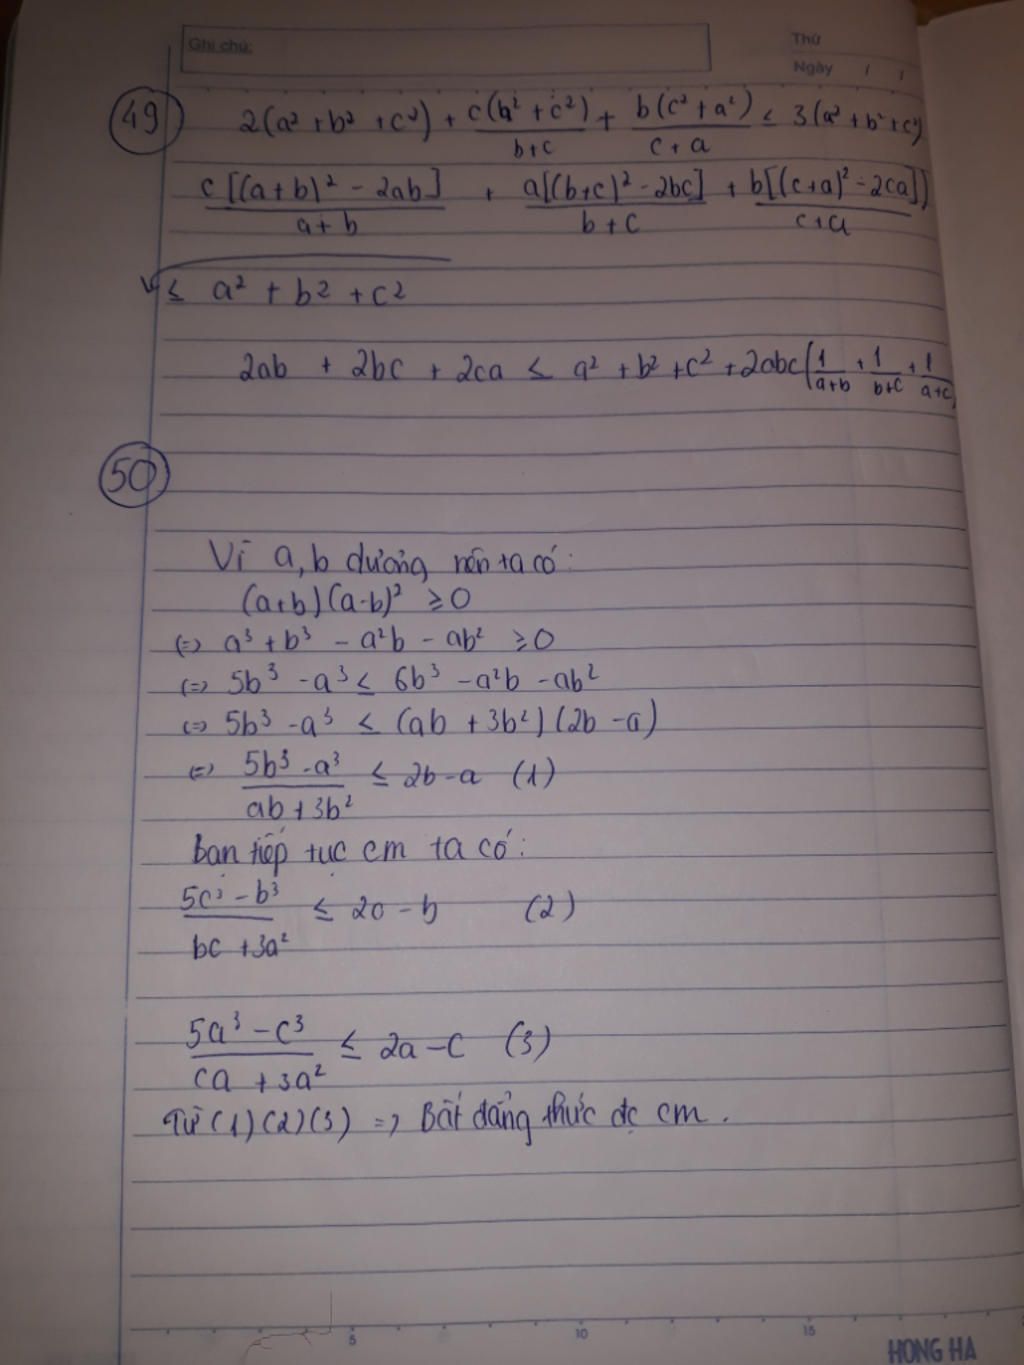 Ghi chú:
Thứ
Ngày / /
49
2(a² + b² + c²) + c(b² + c²)/b+c + b(c² + a²)/c+a ≤ 3(a² + b² + c²)
c[(a+b)² - 2ab]/a+b + a[(b+c)² - 2bc]/b+c + b[(c+a)² - 2ca])/c+a
≤ a² + b² + c²
2ab + 2bc + 2ca ≤ a² + b² + c² + 2abc(1/a+b + 1/b+c + 1/a+c)
50
Vì a, b dương nên ta có:
(a+b)(a-b)² ≥ 0
(=) a³ + b³ - a²b - ab² ≥ 0
(=) 5b³ - a³ ≤ 6b³ - a²b - ab²
(=) 5b³ - a³ ≤ (ab + 3b²)(2b - a)
(=) 5b³ - a³/ab + 3b² ≤ 2b - a (1)
bạn tiếp tục cm ta có:
5c³ - b³/bc + 3a² ≤ 2c - b (2)
5a³ - c³/ca + 3a² ≤ 2a - c (3)
Từ (1)(2)(3) => Bất đẳng thức đc cm.
5 10 15
HONG HA